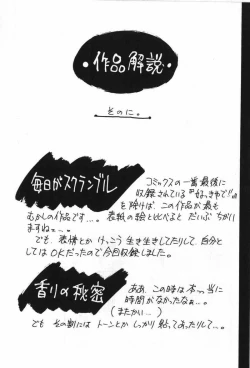 ・作品解説・
その に。
毎日がスクランブル
コミックスの一番最後に
収録されている『好っきやで"』
を除けば、この作品が最も
むかしの作品です...。表紙の絵と比べると だいぶ ちがい
ますねェ...。
でも、表情とか けっこう 生き生きしてたりして、自分と
しては OKだったので今回収録しました。
香りの秘密
ああ、この時は 本ッ当に
時間がなかったなぁ...。
(またかい...)
でも その割には トーンとか しっかり 貼ってあったりして...。